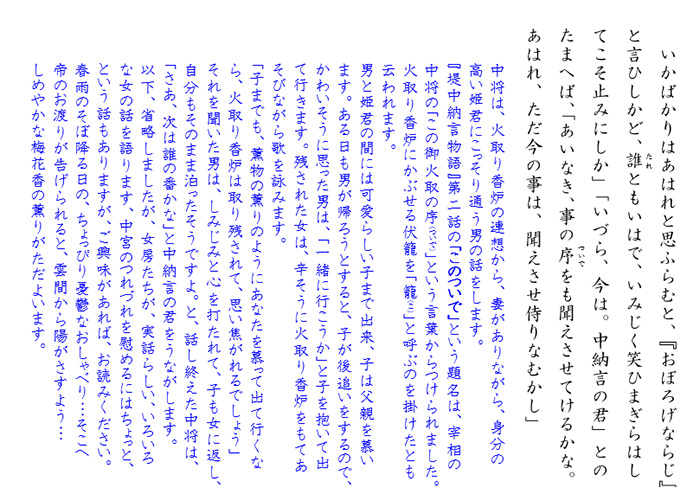 いかばかりはあはれと思ふらむと、『おぼろげならじ』
と言ひしかど、誰ともいはで、いみじく笑ひまぎらはし
てこそ止みにしか」「いづら、今は。中納言の君」との
たまへば、「あいなき、事の序をも聞えさせてけるかな。
あはれ、ただ今の事は、聞えさせ侍りなむかし」
中将は、火取り香炉の連想から、妻がありながら、身分の
高い姫君にこっそり通う男の話をします。
『堤中納言物語』第二話の「このついで」という題名は、宰相の
中将の「この御火取の序(ついで)」という言葉からつけられました。
火取り香炉にかぶせる伏籠を「籠(こ)」と呼ぶのを掛けたとも
云われます。
男と姫君の間には可愛らしい子まで出来、子は父親を慕い
ます。ある日も男が帰ろうとすると、子が後追いをするので、
かわいそうに思った男は、「一緒に行こうか」と子を抱いて出
て行きます。残された女は、辛そうに火取り香炉をもてあ
そびながら歌を詠みます。
「子までも、薫物の薫りのようにあなたを慕って出て行くな
ら、火取り香炉は取り残されて、思い焦がれるでしょう」
それを聞いた男は、しみじみと心を打たれて、子も女に返し、
自分もそのまま泊ったそうですよ。と、話し終えた中将は、
「さあ、次は誰の番かな」と中納言の君をうながします。
以下、省略しましたが、女房たちが、実話らしい、いろいろ
な女の話を語ります。中宮のつれづれを慰めるにはちょっと、
という話もありますが、ご興味があれば、お読みください。
春雨のそぼ降る日の、ちょっぴり憂鬱なおしゃべり…そこへ
帝のお渡りが告げられると、雲間から陽がさすよう…
しめやかな梅花香の薫りがただよいます。